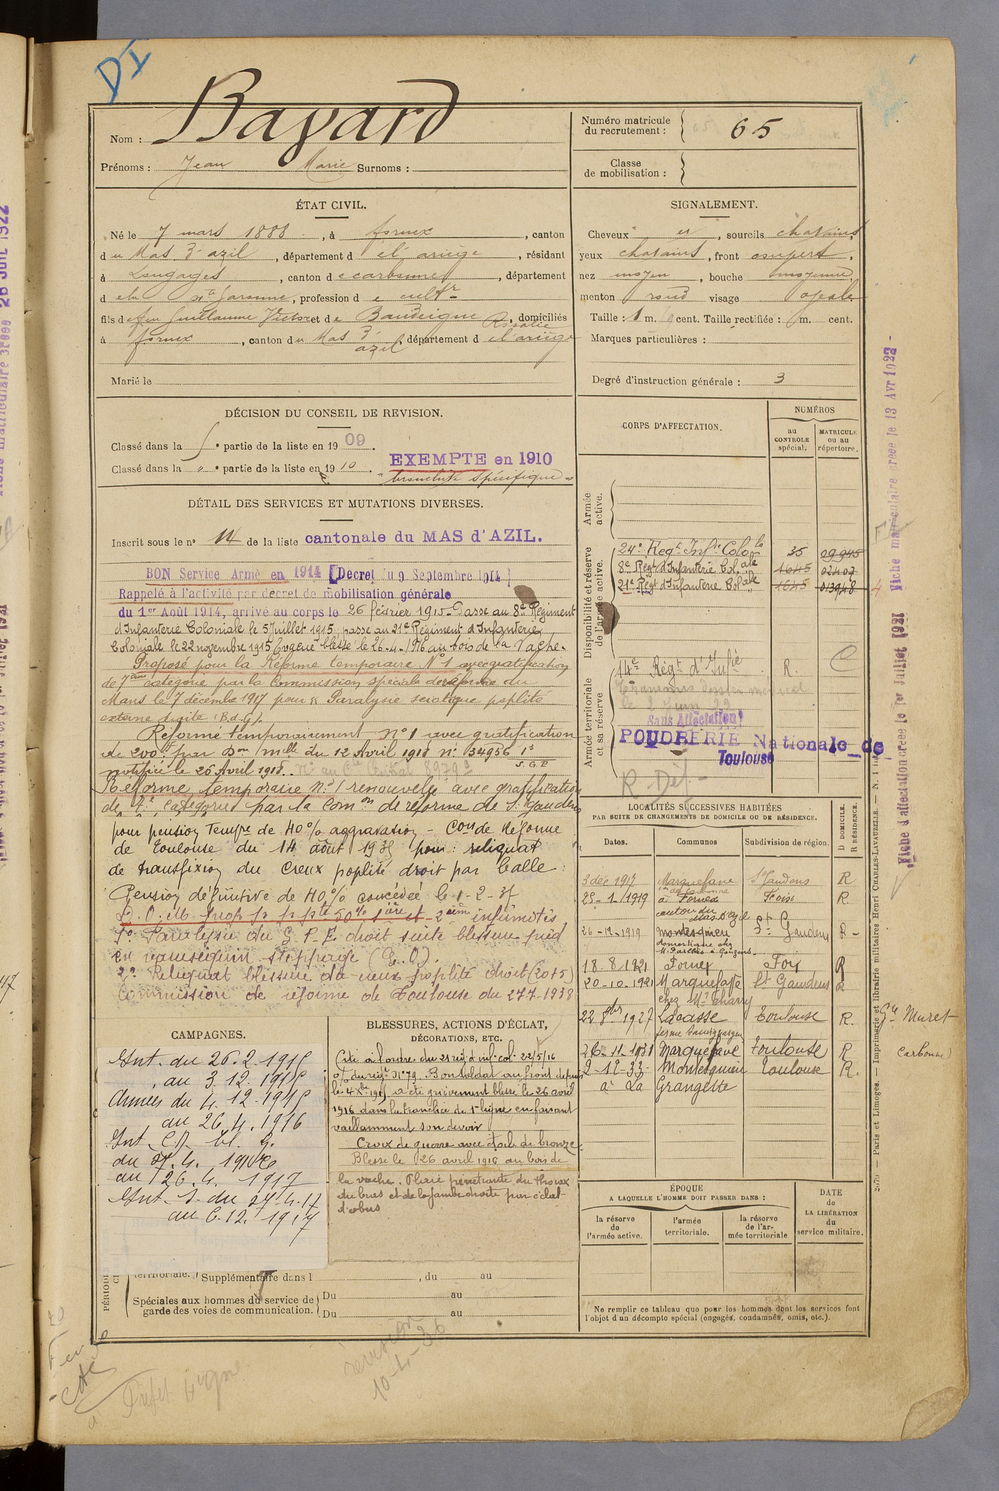 DI
Nom : Bayard
Prénoms : Jean Marie Surnoms :
Numéro matricule du recrutement : 65
Classe de mobilisation :
ÉTAT CIVIL.
Né le 7 mars 1888, à fornex, canton
du Mas d'azil, département de l'ariège, résidant
à Longages, canton de carbonne, département
de la Hte Garonne, profession de cultr
fils de feu Guillaume Victor et de Baudeigne Rosalie, domiciliés
à fornex, canton du Mas d'azil, département de l'ariège
Marié le
SIGNALEMENT.
Cheveux et, sourcils chatains,
yeux chatains, front
nez moyen, bouche moyenne,
menton rond visage ovale
Taille : 1 m. cent. Taille rectifiée : m. cent.
Marques particulières :
Degré d'instruction générale : 3
DÉCISION DU CONSEIL DE REVISION.
Classé dans la partie de la liste en 1909.
Classé dans la partie de la liste en 1910.
EXEMPTE en 1910
bronchite spécifique
DÉTAIL DES SERVICES ET MUTATIONS DIVERSES.
Inscrit sous le n° 14 de la liste cantonale du MAS d'AZIL.
BON Service Armé en 1914 [Decret du 9 Septembre 1914]
Rappelé à l'activité par décret de mobilisation générale
du 1er Août 1914, arrivé au corps le 26 février 1915. Passé au 8e Régiment
d'Infanterie Coloniale le 5 Juillet 1915, passé au 21e Régiment d'Infanterie
Coloniale le 22 novembre 1915. Evacué blessé le 26.4.1916 au bois de la Vache.
Proposé pour la Réforme temporaire N° 1 avec gratification
de 7ème catégorie par la Commission spéciale de réforme du
Mans le 7 décembre 1917 pour : Paralysie sciatique poplité
externe droite
Réformé temporairement n° 1 avec gratification
de 200f par Don mlle du 12 Avril 1918 n° 134956 1°
notifiée le 26 Avril 1918.
Réforme temporaire N° 1 renouvelée avec gratification
de catégorie par la Comon de réforme de St Gaudens
pour pension Tempre de 40% aggravation - Con de Réforme
de Toulouse du 14 août 193 pour : reliquat
de transfixion du creux poplité droit par balle
Pension définitive de 40% concédée le 1-2-3
prop p. p. pte 50% 1ère et 2ème infirmités
1° Paralysie du S.P.E. droit suite blessure pied
en varus équin steppage
2° Reliquat blessure du creux poplité droit
Commission de réforme de Toulouse du 27.7.1938
CORPS D'AFFECTATION.
NUMÉROS
au CONTRÔLE spécial.
MATRICULE OU AU répertoire.
Armée active.
Disponibilité et réserve de l'armée active.
24e Régt Infie Colole 35
8e Régt d'Infanterie Colale 1645 02402
21e Régt d'Infanterie Colale 1645 013948
Armée territoriale et sa réserve
14e Régt d'Infie R.
Sans Affectation
POUDRERIE Nationale de
Toulouse
LOCALITÉS SUCCESSIVES HABITÉES
PAR SUITE DE CHANGEMENTS DE DOMICILE OU DE RÉSIDENCE.
Dates. Communes Subdivision de région. D. DOMICILE. R. RÉSIDENCE.
3 déc 1917 Marquefave St Gaudens R
25-1-1919 à Fornex Foix R
canton du Mas d'Azil
26-12-1919 Montesquieu St Gaudens R
domestique chez
18.8.1921 Fornex Foix R
20-10-1921 Marquefave St Gaudens R
22 8bre 1927 Lacasse Toulouse R. Gie Muret
26.11.1931 Marquefave Toulouse R (Carbonne)
2-12-33 Montesquieu Toulouse R.
à La Grangette
CAMPAGNES.
Int. du 26.2.1915
au 3.12.1915
Armées du 4.12.1915
au 26.4.1916
Int. Cp. bl. G.
du 27.4.1916
au 26.4.1917
Int. S. du 27.4.17
au 6.12.1917
BLESSURES, ACTIONS D'ÉCLAT,
DÉCORATIONS, ETC.
Cité à l'ordre du 21 rég d'inf. col. 22/5/16
o/ du régt N° 79. Bon soldat au front depuis
le 4 1915 a été grièvement blessé le 26 avril
1916 dans la tranchée de 1ère ligne en faisant
vaillamment son devoir
Croix de guerre avec étoile de bronze
Blessé le 26 avril 1916 au bois de
la vache. Plaie pénétrante du thorax
du bras et de la jambe droite par éclat
d'obus
territoriale. Supplémentaire dans l , du au
Spéciales aux hommes du service de garde des voies de communication. Du au
Du au
ÉPOQUE
A LAQUELLE L'HOMME DOIT PASSER DANS :
la réserve de l'armée active.
l'armée territoriale.
la réserve de l'armée territoriale
DATE de LA LIBÉRATION du service militaire.
Ne remplir ce tableau que pour les hommes dont les services font
l'objet d'un décompte spécial (engagés, condamnés, omis, etc.).
Fiche matriculaire créée le 13 Avr 1922
Fiche d'affectation créée le 1er Juillet 1921
Paris et Limoges. — Imprimerie et librairie militaires Henri CHARLES-LAVAUZELLE.
10-4-36